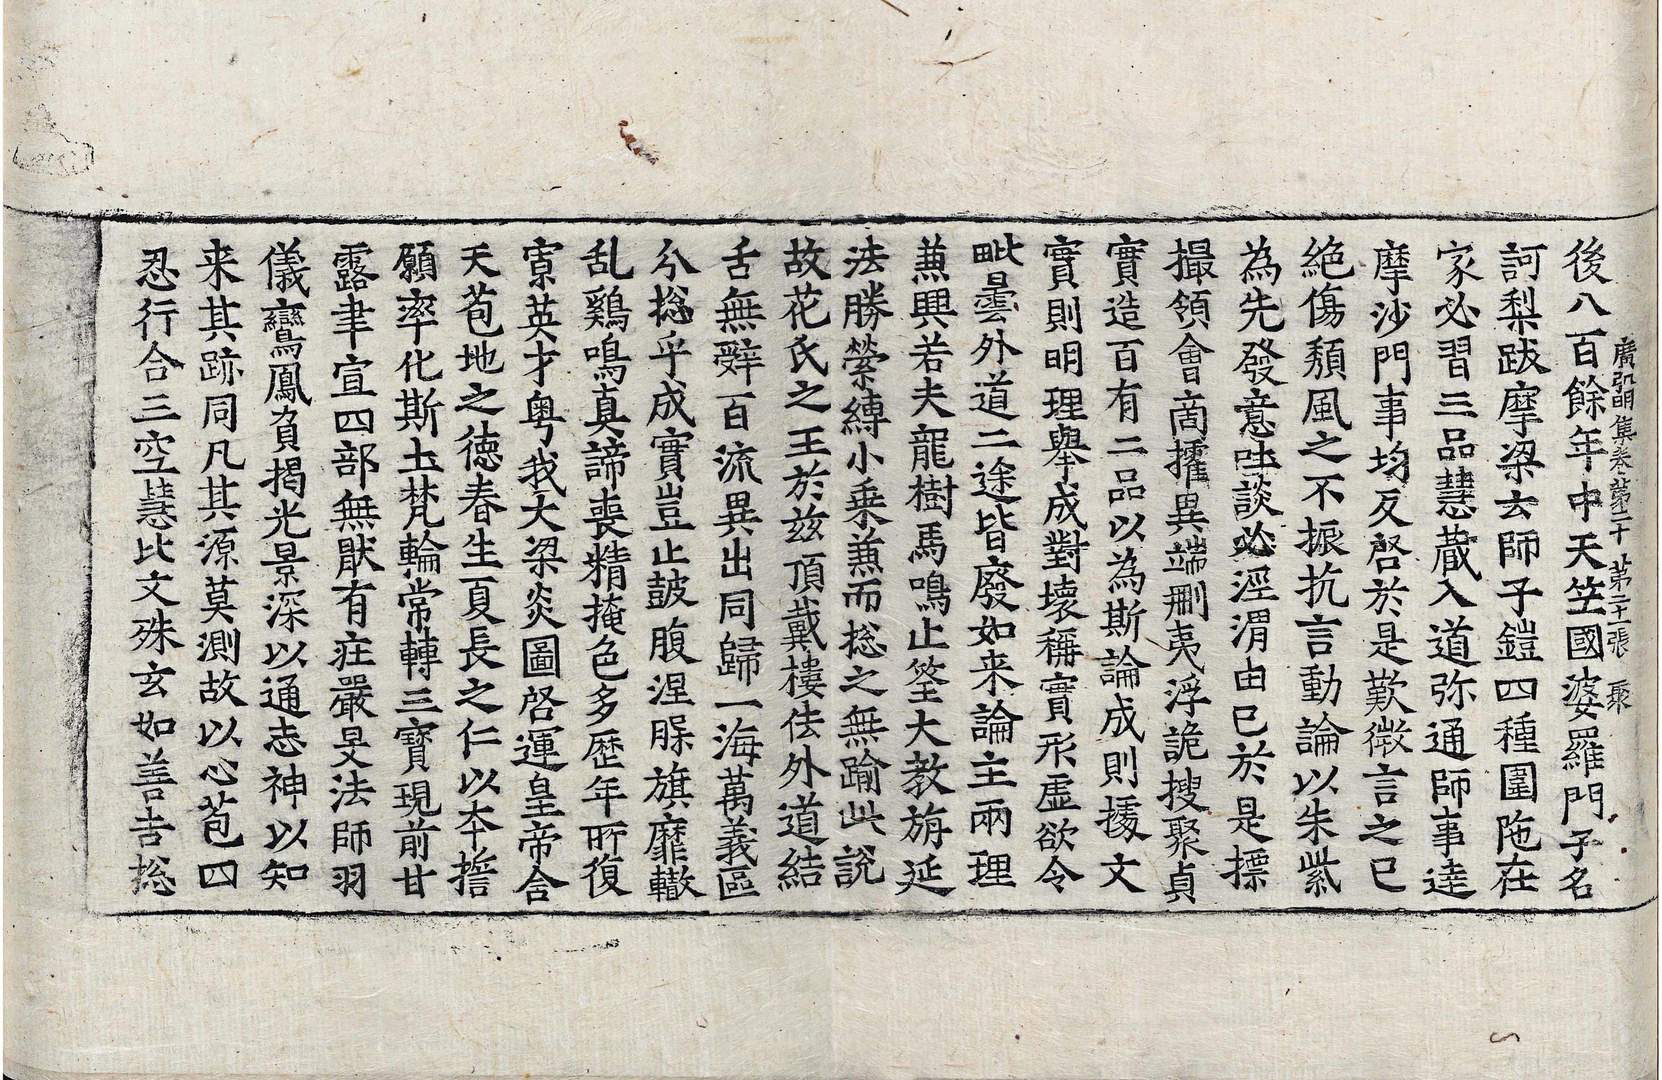 廣弘明集卷第二十 第二十一張 聚
後八百餘年中天笁國婆羅門子名
訶梨跋摩梁去師子鎧四種圍陁在
家必習三品慧蔵入道弥通師事逹
摩沙門事均反啓於是歎微言之已
絶傷頽風之不振抗言動論以朱紫
為先發意吐談必涇渭由已於是摽
撮領會啇攉異端刪夷浮詭搜聚貞
實造百有二品以為斯論成則據文
實則明理舉成對壞稱實形虛欲令
毗曇外道二途皆廢如来論主兩理
兼興若夫龍樹馬鳴止筌大教旃延
法勝縈縛小乗兼而揔之無踰此說
故花氏之王於兹頂戴樓佉外道結
舌無辤百流異出同歸一海萬義區
分揔乎成實豈止皷腹涅𣨼旗靡轍
乱鷄鳴真諦喪精掩色多歷年所復
寔英才粤我大梁炎圖啓運皇帝含
天苞地之德春生夏長之仁以本誓
願率化斯土梵輪常轉三寶現前甘
露聿宣四部無猒有疘嚴旻法師羽
儀鸞鳳負揭光景深以通志神以知
来其跡同凡其源莫測故以心苞四
忍行合三空慧比文殊玄如善吉揔